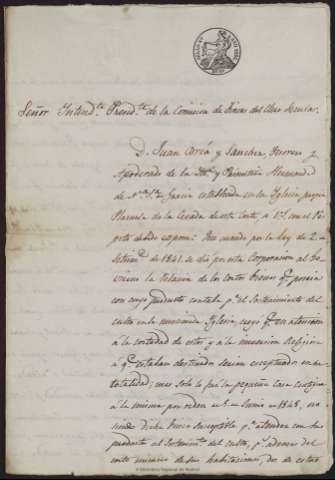 Señor Intend.te Presid.te de la Comision de Bienes del Clero Secular.
D. Juan García y Sanchez, Tesorero y
Apoderado de la Yll.e y Primitiva Hermand.d
de N.ra S.ra Gracia establecida en su Yglesia propia
Plazuela de la Cevada de esta Corte, á V.S. con el res
peto debido expone: Que cuando por la Ley de 2 de
Setiem.e de 1841 se dió por esta Corporacion al Go
bierno la Relacion de los cortos bienes q.e poseia
con cuyo producto contaba p.a el sostenimiento del
culto en la mencionada Yglesia, creyó q.e en atencion
á la cortedad de estos y á la
á q.e estaban destinados serian exceptuados en su
totalidad; mas solo lo fué la pequeña Casa contigua
á la misma por orden de Enero de 1843, no
siendo dicha finca susceptible p.a atender con su
producto al Sostenim.to del culto, p.r ademas del
corto numero de sus habitaciones, dos de estas
© Biblioteca Regional de Madrid